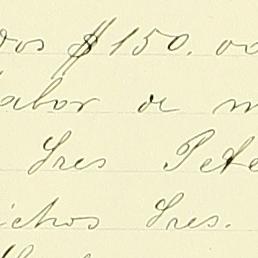 dos $150.00
labor de m
Sres Pete
ichos Sres.